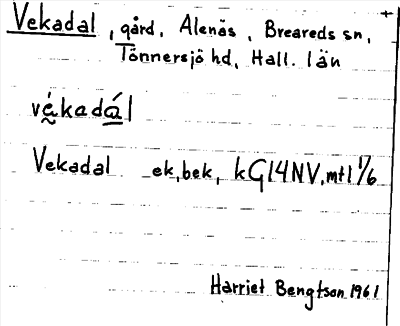 Vekadal, gård, Alenäs, Breareds sn,
Tönnersjö hd, Hall. län
vékadál
Vekadal ek, bek, kGI4NV, mtl 1/6
Harriet Bengtson 1961